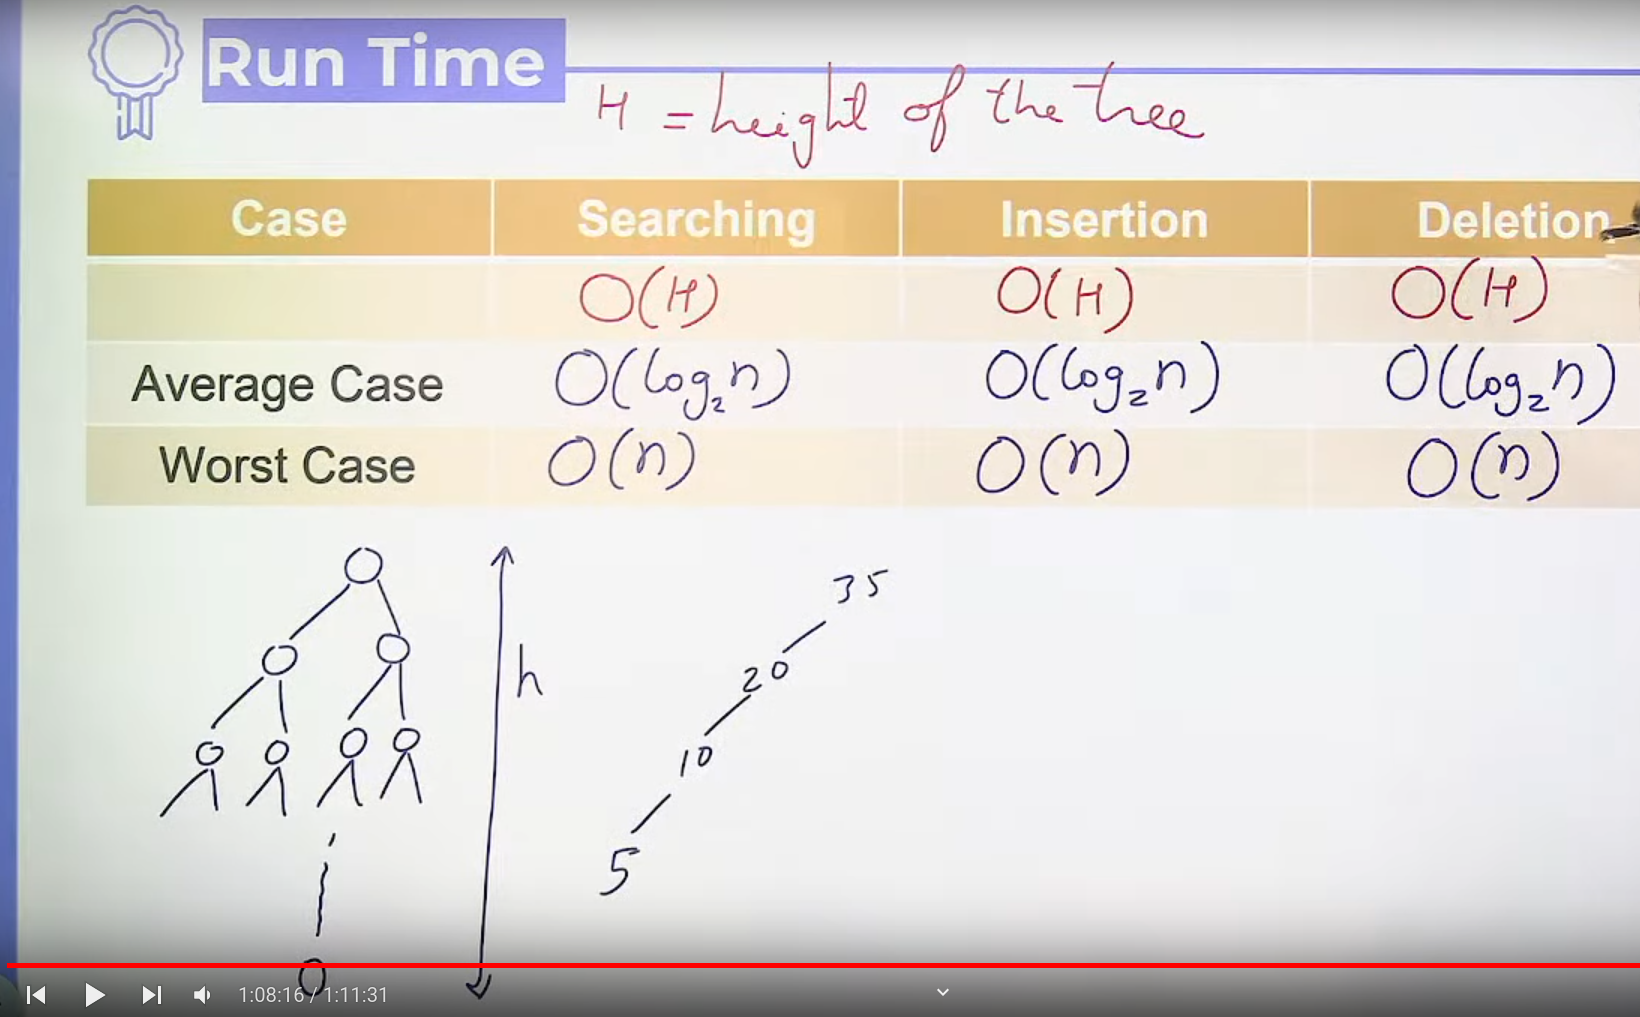 Run Time
H = height of the tree
Case Searching Insertion Deletion
O(H) O(H) O(H)
Average Case O(log₂n) O(log₂n) O(log₂n)
Worst Case O(n) O(n) O(n)
35
h
20
10
5
1:08:16 / 1:11:31